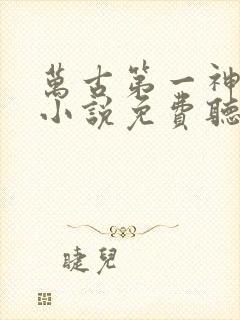 萬古第一神
小說免費聽
睫兒